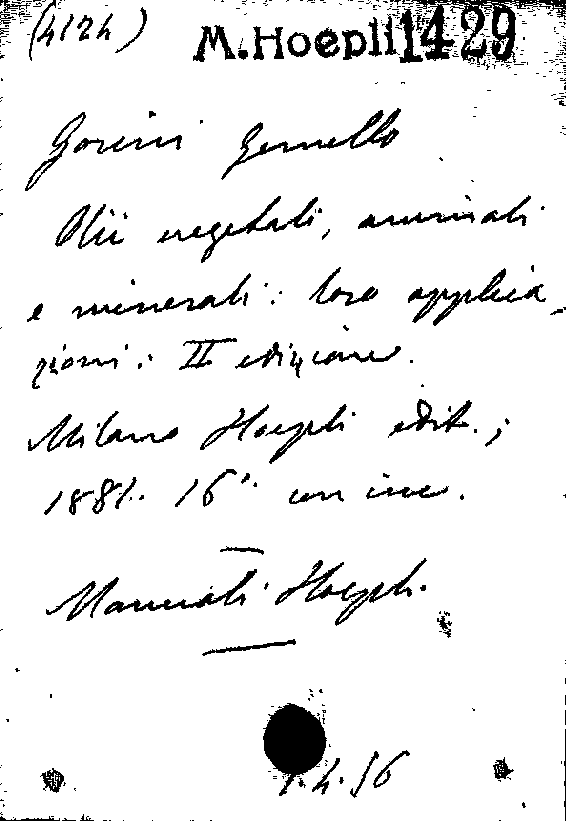 (4124) M. Hoepli 1429
Gorini Gemello
Olii vegetali, animali
e minerali: loro applica-
zioni: II edizione.
Milano Hoepli edit.;
1881. 16° con inc.
Manuali Hoepli.
1.4.16